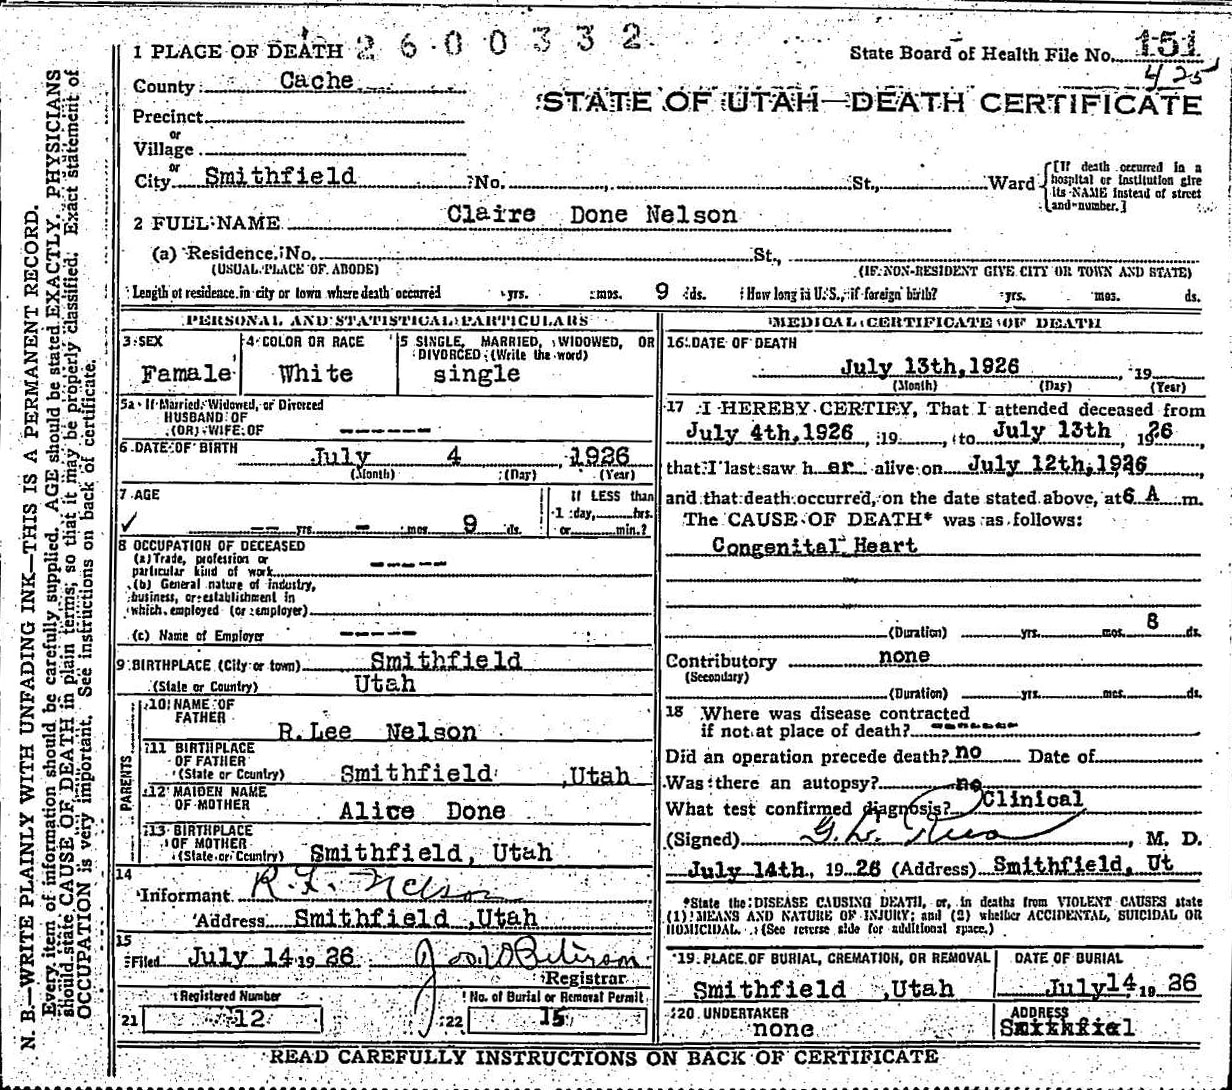 2 6 0 0 3 3 2
1 PLACE OF DEATH
State Board of Health File No. 151
425
County Cache
STATE OF UTAH—DEATH CERTIFICATE
Precinct
or
Village
or
City Smithfield No. St., Ward
[If death occurred in a hospital or institution give its NAME instead of street and number.]
2 FULL NAME Claire Done Nelson
(a) Residence. No. St.,
(USUAL PLACE OF ABODE) (IF NON-RESIDENT GIVE CITY OR TOWN AND STATE)
Length of residence in city or town where death occurred yrs. mos. 9 ds. How long in U.S., if foreign birth? yrs. mos. ds.
PERSONAL AND STATISTICAL PARTICULARS
3 SEX
Famale
4 COLOR OR RACE
White
5 SINGLE, MARRIED, WIDOWED, OR
DIVORCED (Write the word)
single
5a If Married, Widowed, or Divorced
HUSBAND OF
(OR) WIFE OF -----
6 DATE OF BIRTH
July 4 , 1926
(Month) (Day) (Year)
7 AGE
-- yrs. - mos. 9 ds.
If LESS than
1 day, hrs.
or min.?
8 OCCUPATION OF DECEASED
(a) Trade, profession or
particular kind of work ----
(b) General nature of industry,
business, or establishment in
which employed (or employer)
(c) Name of Employer ----
9 BIRTHPLACE (City or town) Smithfield
(State or Country) Utah
PARENTS
10 NAME OF
FATHER
R.Lee Nelson
11 BIRTHPLACE
OF FATHER
(State or Country) Smithfield ,Utah
12 MAIDEN NAME
OF MOTHER Alice Done
13 BIRTHPLACE
OF MOTHER
(State or Country) Smithfield, Utah
14
Informant R. L. Nelson
Address Smithfield ,Utah
15
Filed July 14 19 26
Registrar
Registered Number
21 12
No. of Burial or Removal Permit
22 15
MEDICAL CERTIFICATE OF DEATH
16 DATE OF DEATH
July 13th,1926 , 19
(Month) (Day) (Year)
17 I HEREBY CERTIFY, That I attended deceased from
July 4th,1926 , 19 , to July 13th 1926,
that I last saw h er alive on July 12th,1926
and that death occurred, on the date stated above, at 6 A m.
The CAUSE OF DEATH* was as follows:
Congenital Heart
(Duration) yrs. mos. 8 ds.
Contributory none
(Secondary)
(Duration) yrs. mos. ds.
18 Where was disease contracted
if not at place of death? -------
Did an operation precede death? no Date of
Was there an autopsy? no
What test confirmed diagnosis? Clinical
(Signed) , M. D.
July 14th, 19 26 (Address) Smithfield, Ut
*State the DISEASE CAUSING DEATH, or, in deaths from VIOLENT CAUSES state
(1) MEANS AND NATURE OF INJURY; and (2) whether ACCIDENTAL, SUICIDAL OR
HOMICIDAL. (See reverse side for additional space.)
19 PLACE OF BURIAL, CREMATION, OR REMOVAL
Smithfield ,Utah
DATE OF BURIAL
July 14, 19 26
20 UNDERTAKER
none
ADDRESS
READ CAREFULLY INSTRUCTIONS ON BACK OF CERTIFICATE
N. B.—WRITE PLAINLY WITH UNFADING INK—THIS IS A PERMANENT RECORD.
Every item of information should be carefully supplied. AGE should be stated EXACTLY. PHYSICIANS
should state CAUSE OF DEATH in plain terms, so that it may be properly classified. Exact statement of
OCCUPATION is very important. See instructions on back of certificate.